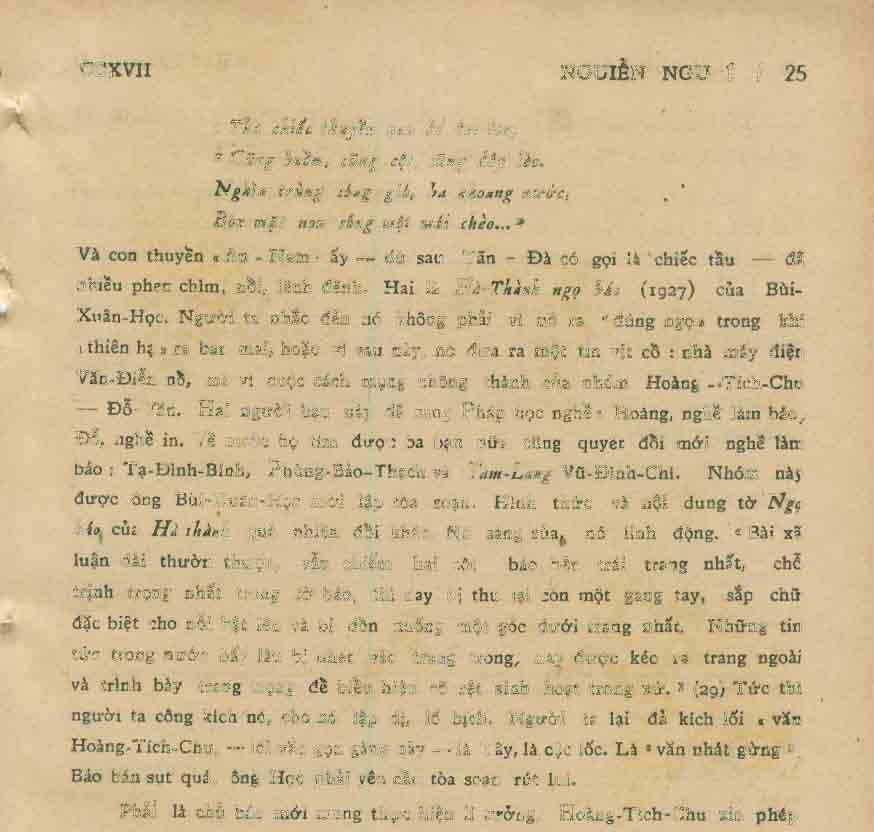 CCXVII NGUIỄN NGU Í / 25
chiếc thuyền
Cũng buồm, cũng cột, cũng
Nghìn trùng sóng gió, ba khoang nước,
Bốn mặt non sông một mái chèo...»
Và con thuyền « An - Nam » ấy — dù sau Tãn - Đà có gọi là chiếc tầu — đã
nhiều phen chìm, nổi, lênh đênh. Hai là Hà-Thành ngọ báo (1927) của Bùi-
Xuân-Học. Người ta nhắc đến nó không phải vì nó ra « đúng ngọ » trong khi
« thiên hạ » ra ban mai, hoặc vì sau này, nó đưa ra một tin vịt cồ : nhà máy điện
Văn-Điển nổ, mà vì cuộc cách mạng thành của nhóm Hoàng - Tích-Chu
— Đỗ- Văn. Hai người bạn này đã sang Pháp học nghề : Hoàng, nghề làm báo,
Đỗ, nghề in. Về nước họ tìm được ba bạn nữa cũng quyết đổi mới nghề làm
báo : Tạ-Đình-Bính, Phùng-Bảo-Thạch và Tam-Lang Vũ-Đình-Chí. Nhóm này
được ông Bùi-Xuân-Học mời lập tòa soạn. Hình thức và nội dung tờ Ngọ
báo, của Hà thành quả nhiên đổi khác. Nó sáng sủa, nó linh động. « Bài xã
luận dài thườn thượt, vẫn chiếm hai cột báo bên trái trang nhất, chỗ
trịnh trọng nhất trong tờ báo, thì nay bị thu lại còn một gang tay, sắp chữ
đặc biệt cho nổi bật lên và bị dồn xuống một góc dưới trang nhất. Những tin
tức trong nước bấy lâu bị nhét vào trang trong, nay được kéo ra trang ngoài
và trình bày trang trọng để biểu hiện rõ rệt sinh hoạt trong xứ. » (29) Tức thì
người ta công kích nó, cho nó lập dị, lố bịch. Người ta lại đả kích lối « văn
Hoàng-Tích-Chu, — lối văn gọn gàng này — là Tây, là cọc lốc. Là « văn nhát gừng »
Báo bán sụt quá, ông Học phải yêu cầu tòa soạn rút lui.
Phải là chủ báo mới mong thực hiện lí tưởng, Hoàng-Tích-Chu xin phép